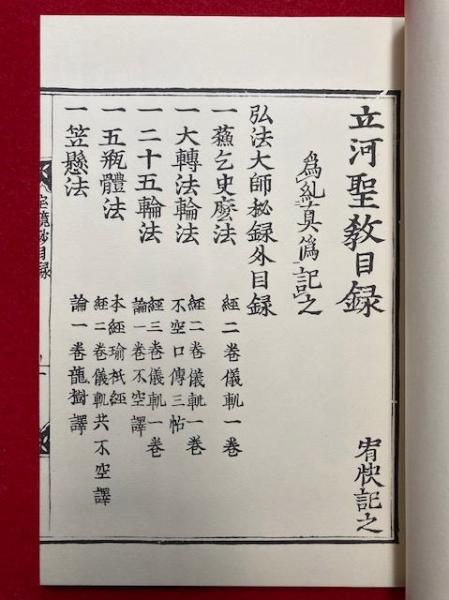 立河聖教目録　宥快記之
爲糺真僞記之
弘法大師秘録外目録
一蘓乞史麼法　經二巻儀軌一巻
一大轉法輪法　經二巻儀軌一巻
不空口傳三帖
一二十五輪法　經三巻儀軌一巻
論一巻不空譯
一五瓶體法　本經瑜祇經
經二巻儀軌共不空譯
一笠懸法　論一巻龍樹譯
寳鏡鈔目録